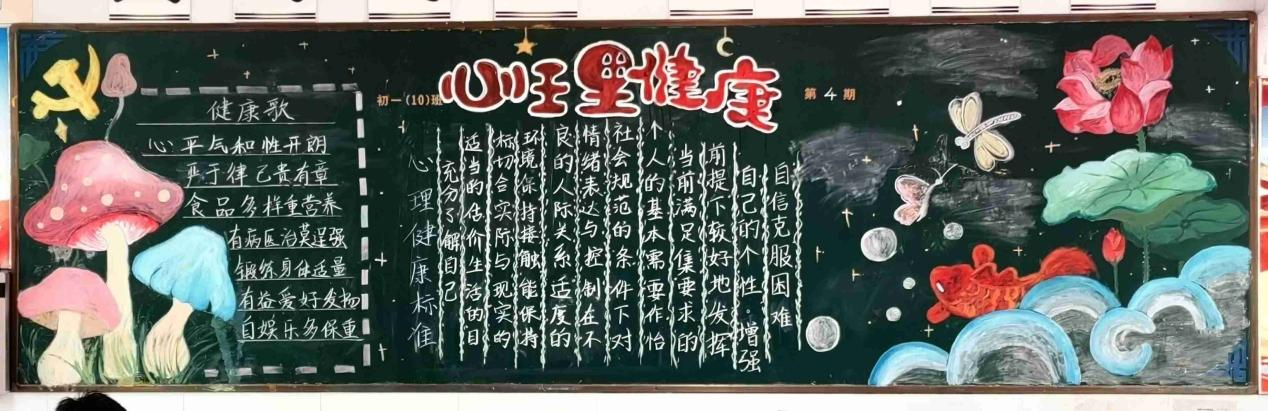 健康歌
心平气和性开朗
严于律己贵有章
食品多样重营养
有病医治莫逞强
锻炼身体适量
有益爱好发扬
自娱乐多保重
初一(10)班
心理健康
第4期
心理健康标准
充分了解自己
适当的估价生活的目
标切合实际与现实的
环境保持接触能保持
良的人际关系适度的
情绪表达与控制在不
社会规范的条件下对
个人的基本需要作恰
当前满足集要求的
前提下较好地发挥
自己的个性.增强
自信克服困难